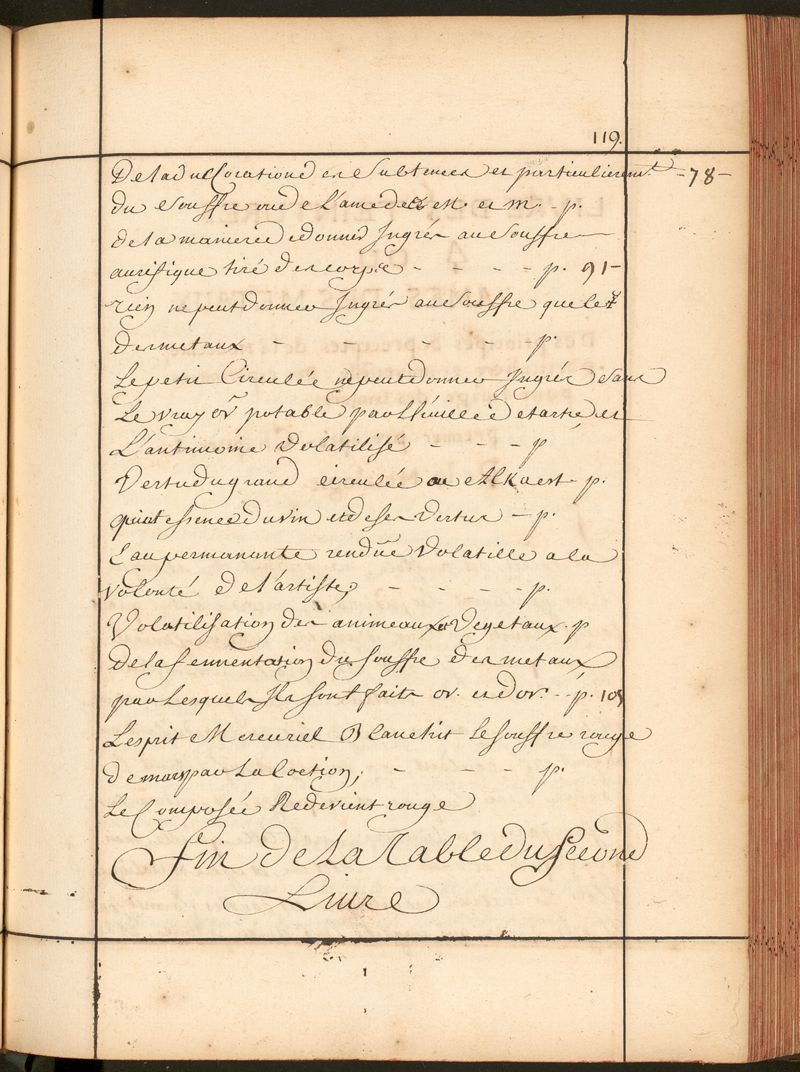 119.
De la dulcoration des Substences et particulierem.t -78-
du Souffre ou de L'ame des M. et M. - p.
de la maniere de donner Ingrés au Souffre
aurifique tiré des corps - - - - p. 91-
rien ne peut donner Ingrés au Souffre que le ☿
des metaux - - - - - p.
Le petit Circulée ne peut donner Ingrés Sans
Le vray or potable par L'huille de tartre et
L'antimoine Volatilisé - - - p
Vertu du grand circulée ou Alkaest - p.
quintessence du vin et de ses Vertus - p.
Eau permanante rendüe Volatille a la
volonté de l'artiste, - - - - p.
Volatilisation des animeaux et Vegetaux. p
De la fermentation du Souffre des metaux
par Lesquels Ils sont faits or. et d'or. - p. 105
L'esprit Mercuriel Blanchit le Souffre rouge
de mars par La Coction, - - - p.
Le Composée Redevient rouge
Fin de La Table du Second
Liure